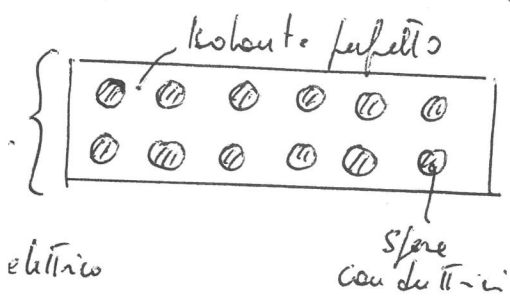 Isolante perfetto
elettrico
Sfere
conduttrici